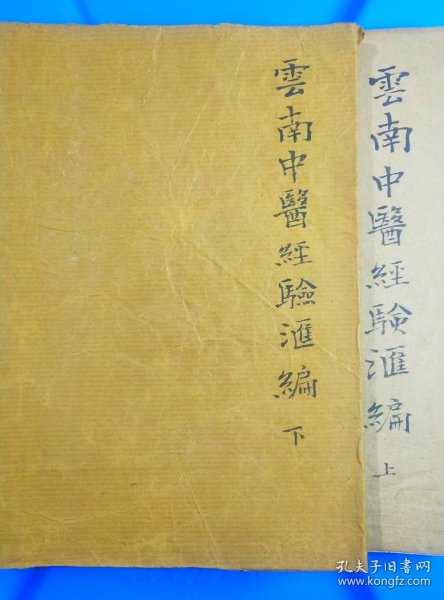 雲南中醫經驗滙編
上
雲南中醫經驗滙編
下
孔夫子旧书网
www.kongfz.com